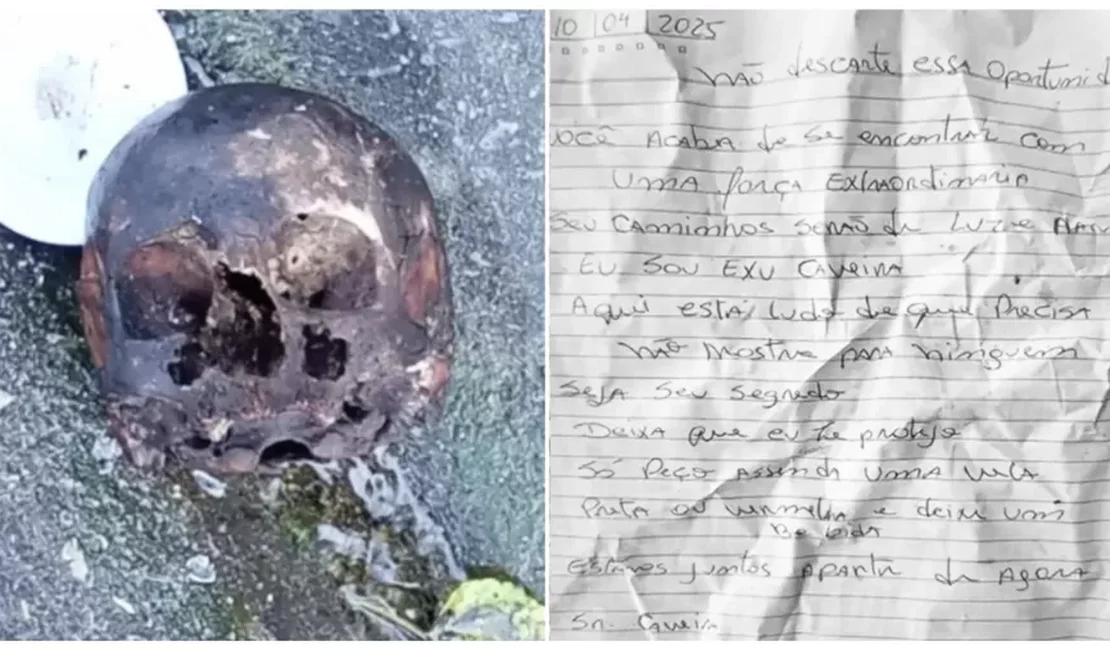 10 04 2025
NÃO descarte essa Oportunid
você Acaba de se encontrar com
UMA força EXTRAORDINARIA
Seu CAMINHOS SERÃO de LUZ e
EU SOU EXU CAVEIRA
Aqui está tudo de que Precisa
NÃO MOSTRE PARA Ninguem
SEJA Seu Segredo
DEIXA que eu te proteJo
Só Peço ASSENDA UMA VELA
Preta ou vermelha e deixe uma
Bebida
Estamos Juntos APARTIR de AgorA
Sr. Caveira